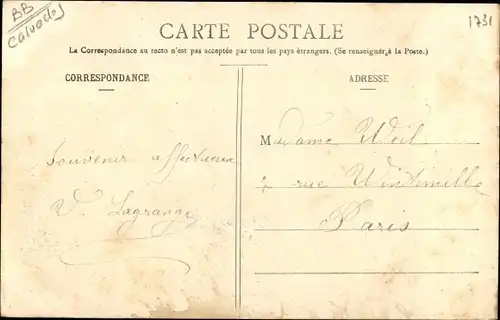 BB
Calvados
1731
CARTE POSTALE
La Correspondance au recto n'est pas acceptée par tous les pays étrangers. (Se renseigner à la Poste.)
CORRESPONDANCE
ADRESSE
Souvenir affectueux
V. Lagrange
Madame Weil
7 rue Vintimille
Paris